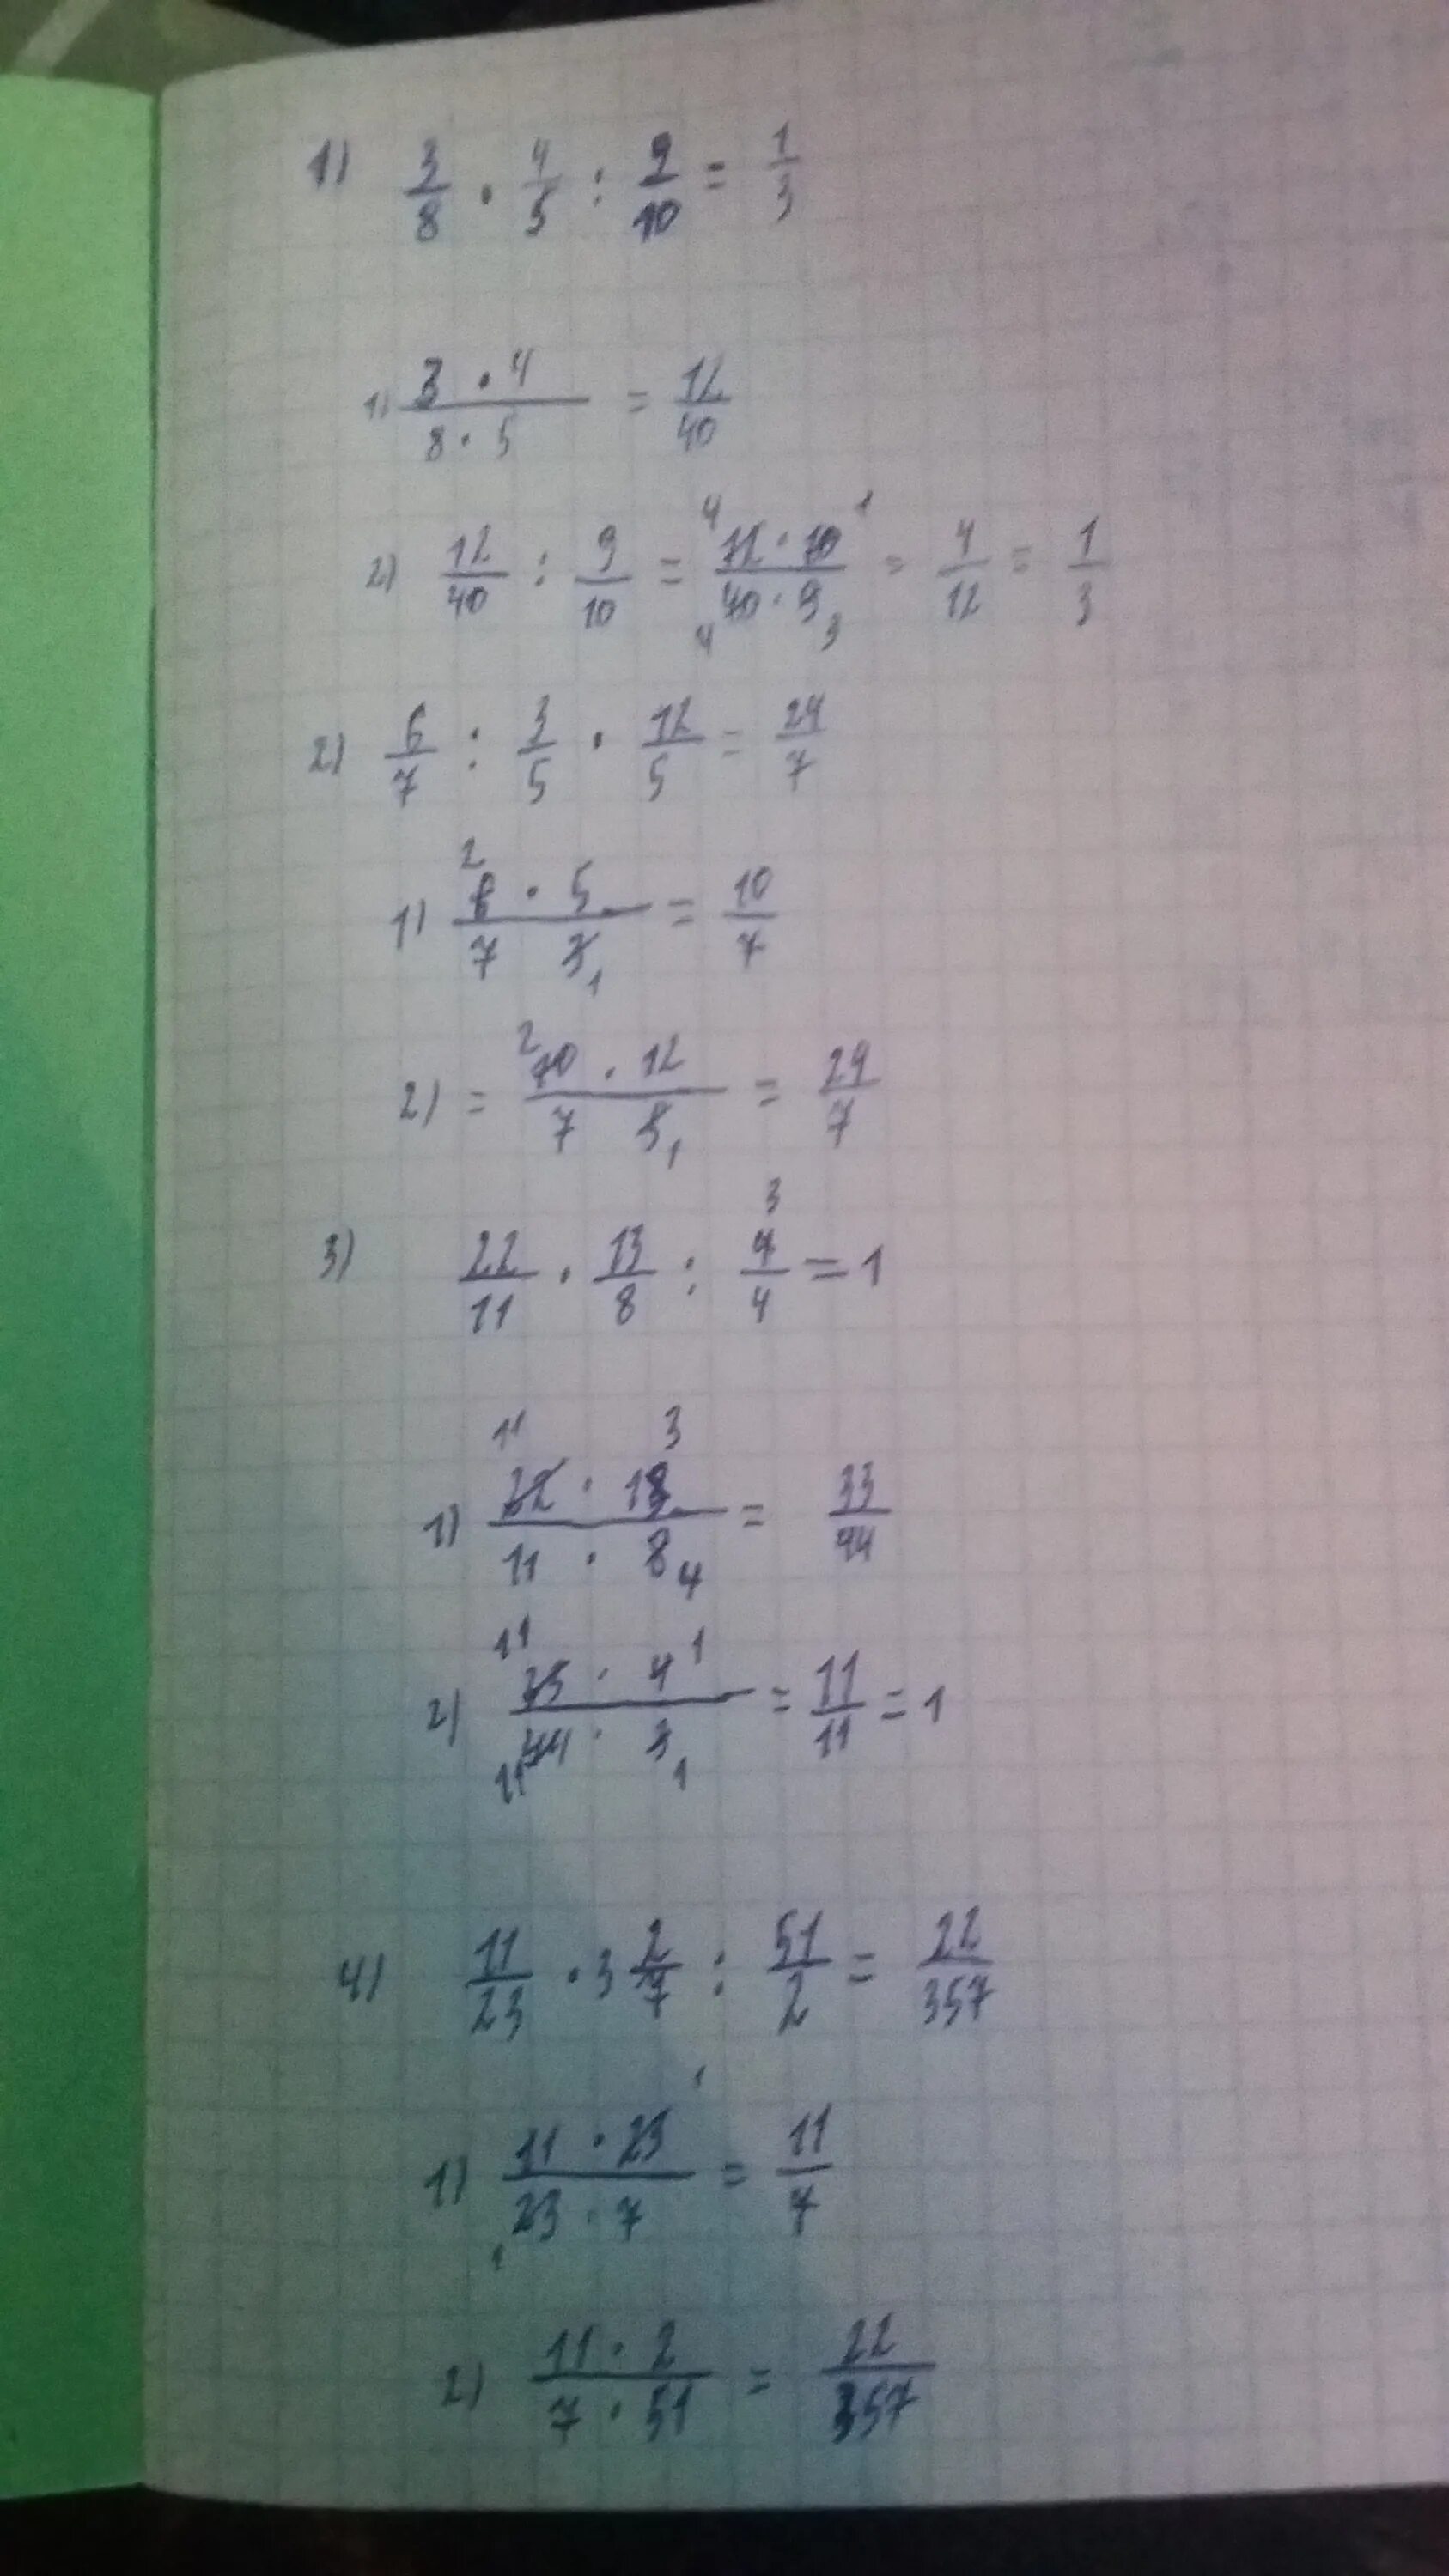 1) 3/8 · 4/5 : 9/10 = 1/3
1) 3 · 4 / 8 · 5 = 12/40
2) 12/40 : 9/10 = 4 12 · 10 1 / 4 40 · 9 3 = 4/12 = 1/3
2) 6/7 : 3/5 · 12/5 = 24/7
1) 2 6 · 5 / 7 3 1 = 10/7
2) = 2 10 · 12 / 7 5 1 = 24/7
3) 22/11 · 13/8 : 3 4/4 = 1
1) 11 22 · 13 3 / 11 · 8 4 = 33/44
2) 11 33 · 4 1 / 11 44 · 3 1 = 11/11 = 1
4) 11/23 · 3 2/7 : 51/2 = 22/357
1) 11 · 23 1 / 1 23 · 7 = 11/7
2) 11 · 2 / 7 · 51 = 22/357